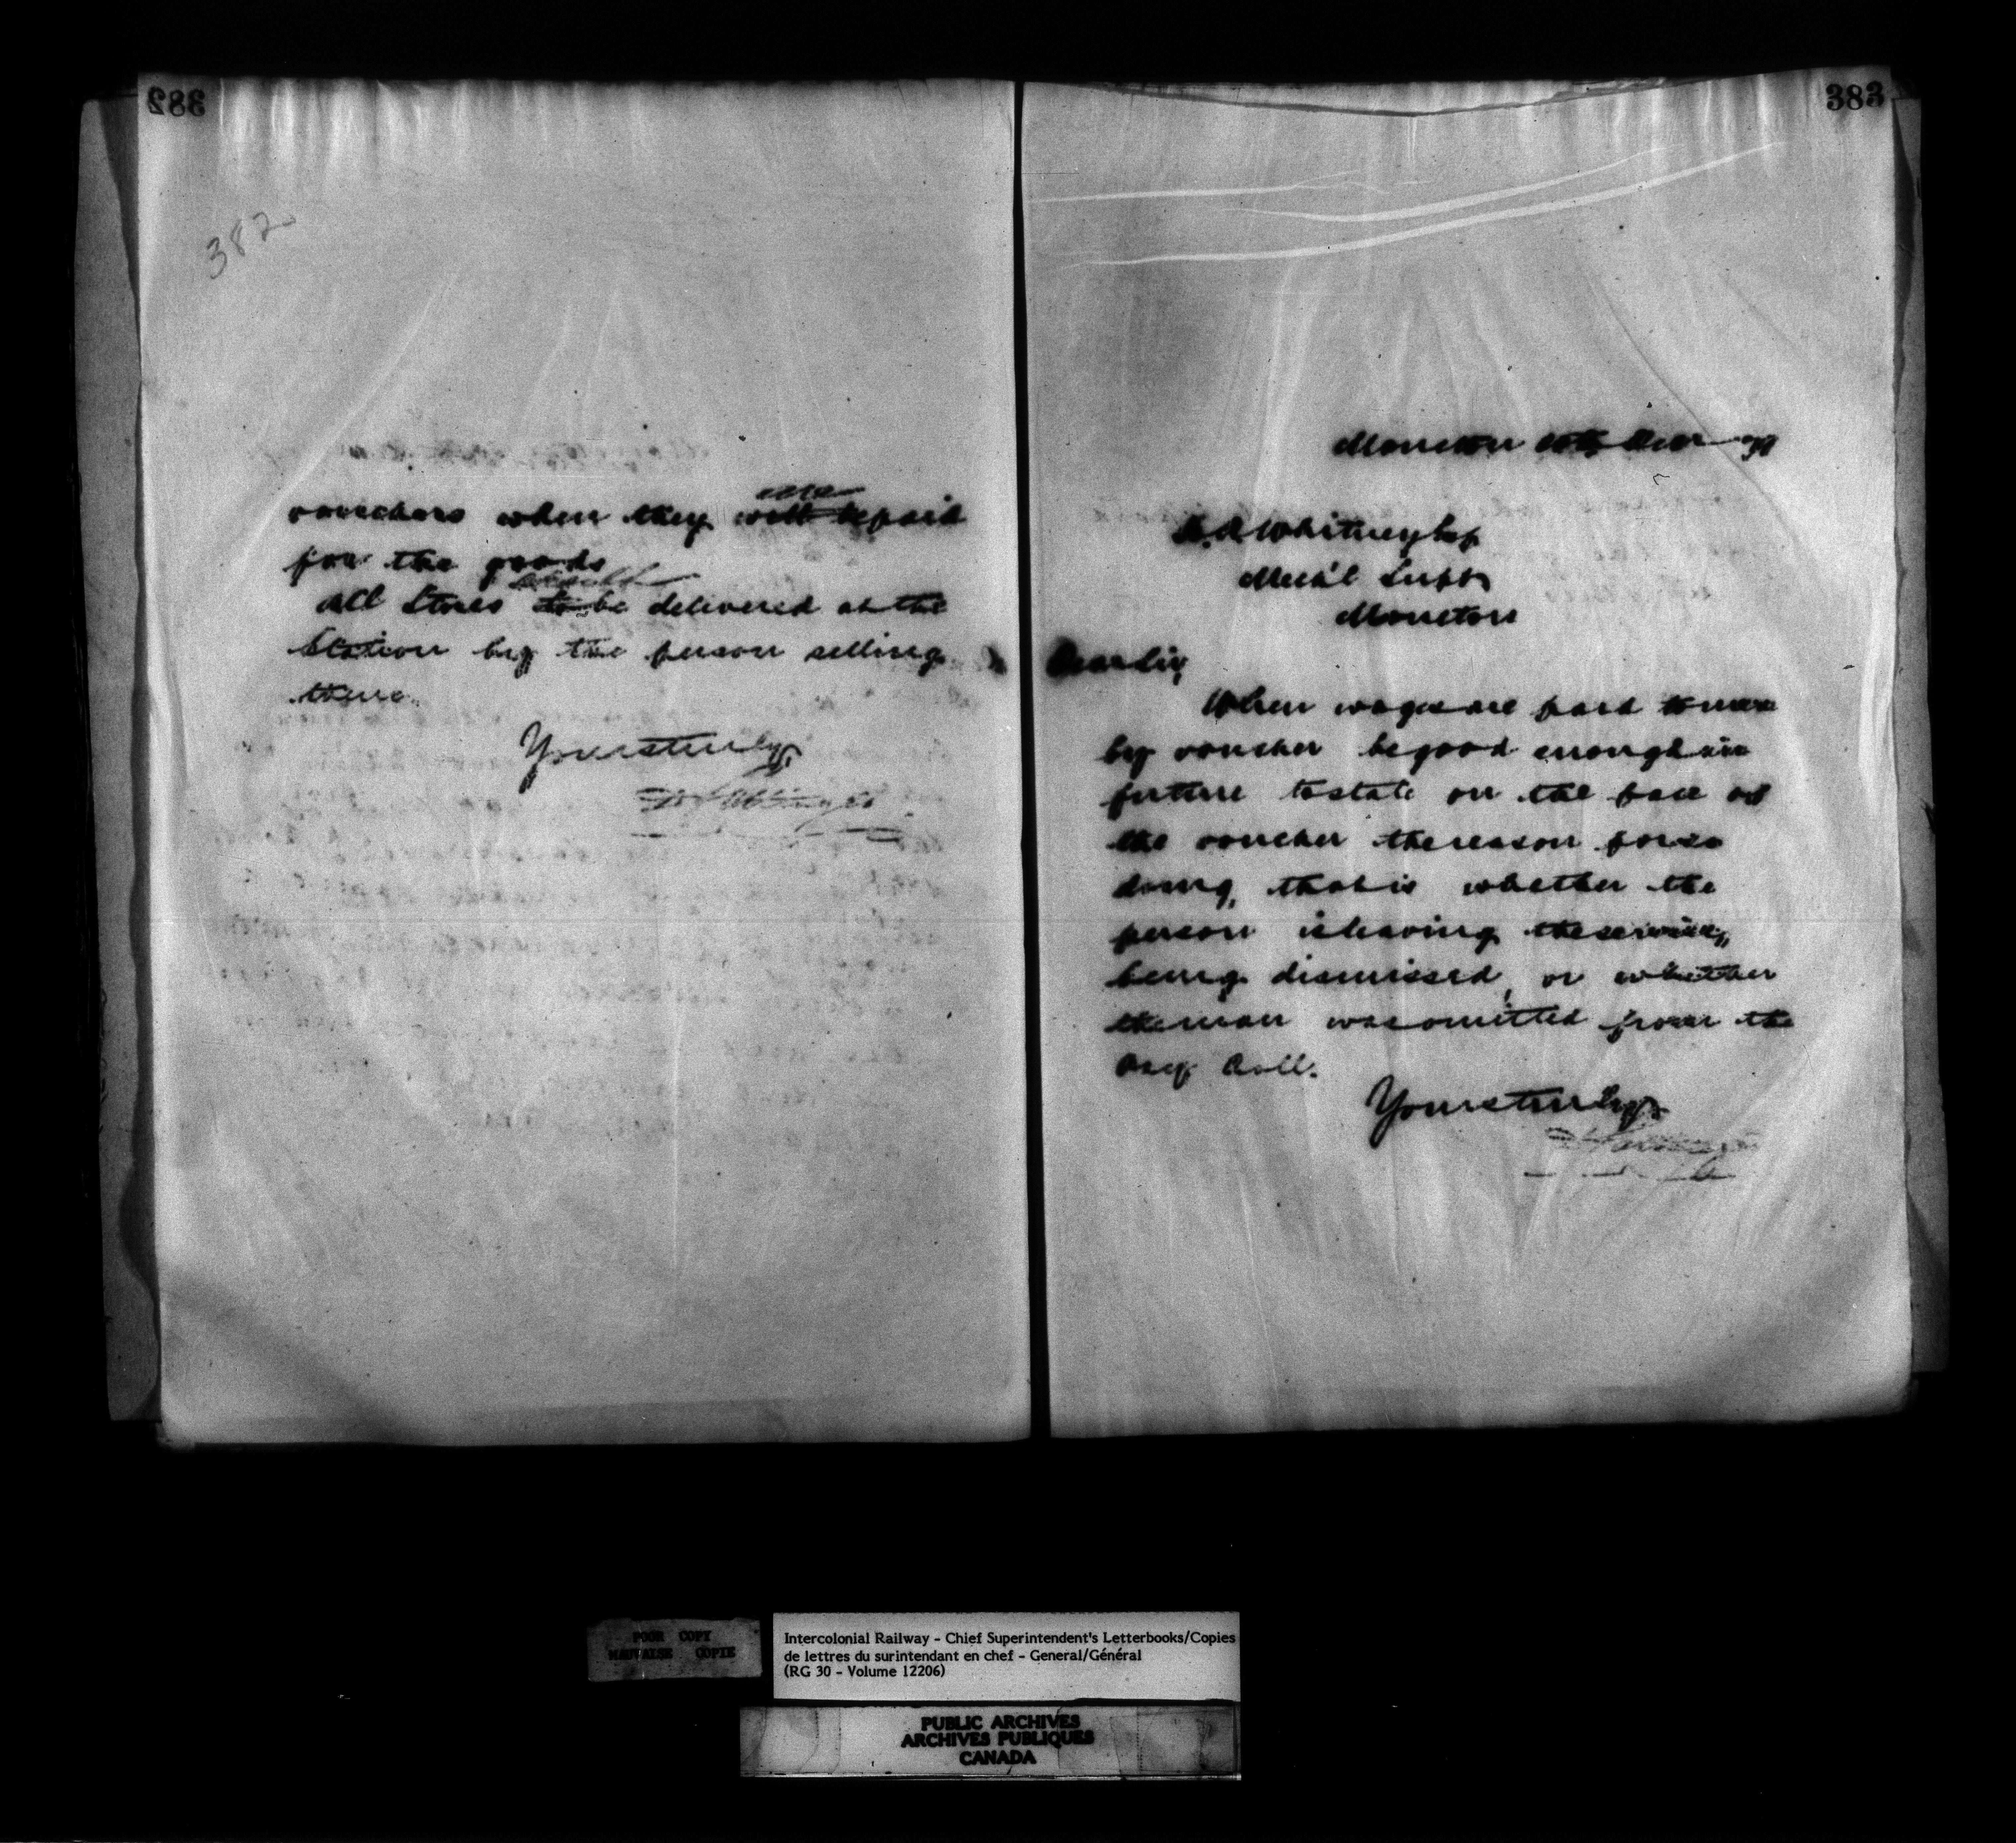 382
382
vouchers when they are will be paid
for the goods
All Stores should to be delivered at the
Station by the person selling
them.
Yours truly,
383
Moncton Decr 79
H.A. Whitney Esq
Mech'l Supt
Moncton
Dear Sir,
When wages are paid to men
by voucher be good enough in
future to state on the face of
the voucher the reason for so
doing, that is whether the
person is leaving the service,
being dismissed, or whether
the man was omitted from the
Pay Roll.
Yours truly
POOR COPY
MAUVAISE COPIE
Intercolonial Railway - Chief Superintendent's Letterbooks/Copies
de lettres du surintendant en chef - General/Général
(RG 30 - Volume 12206)
PUBLIC ARCHIVES
ARCHIVES PUBLIQUES
CANADA